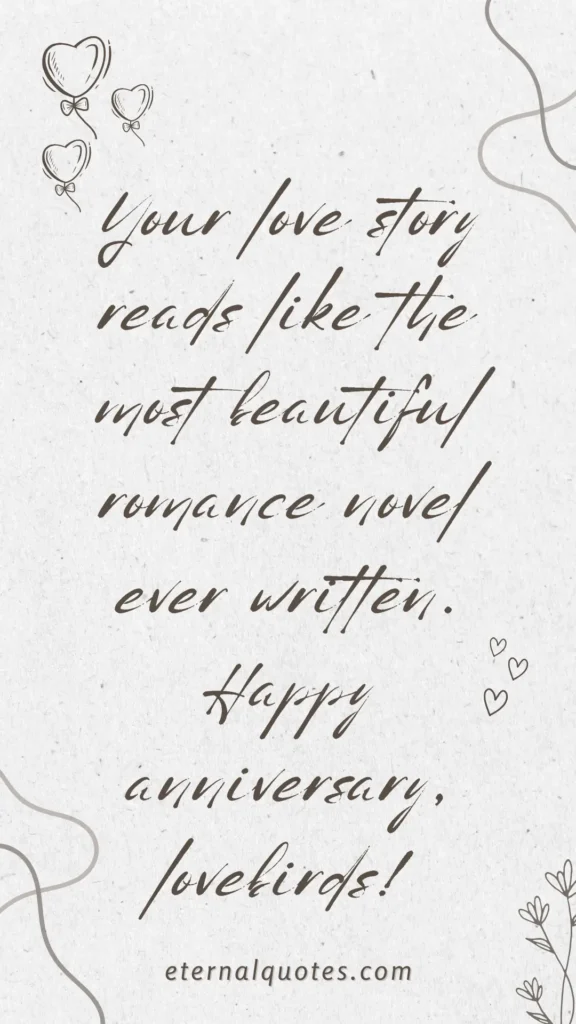 Your love story
reads like the
most beautiful
romance novel
ever written.
Happy
anniversary,
lovebirds!
eternalquotes.com